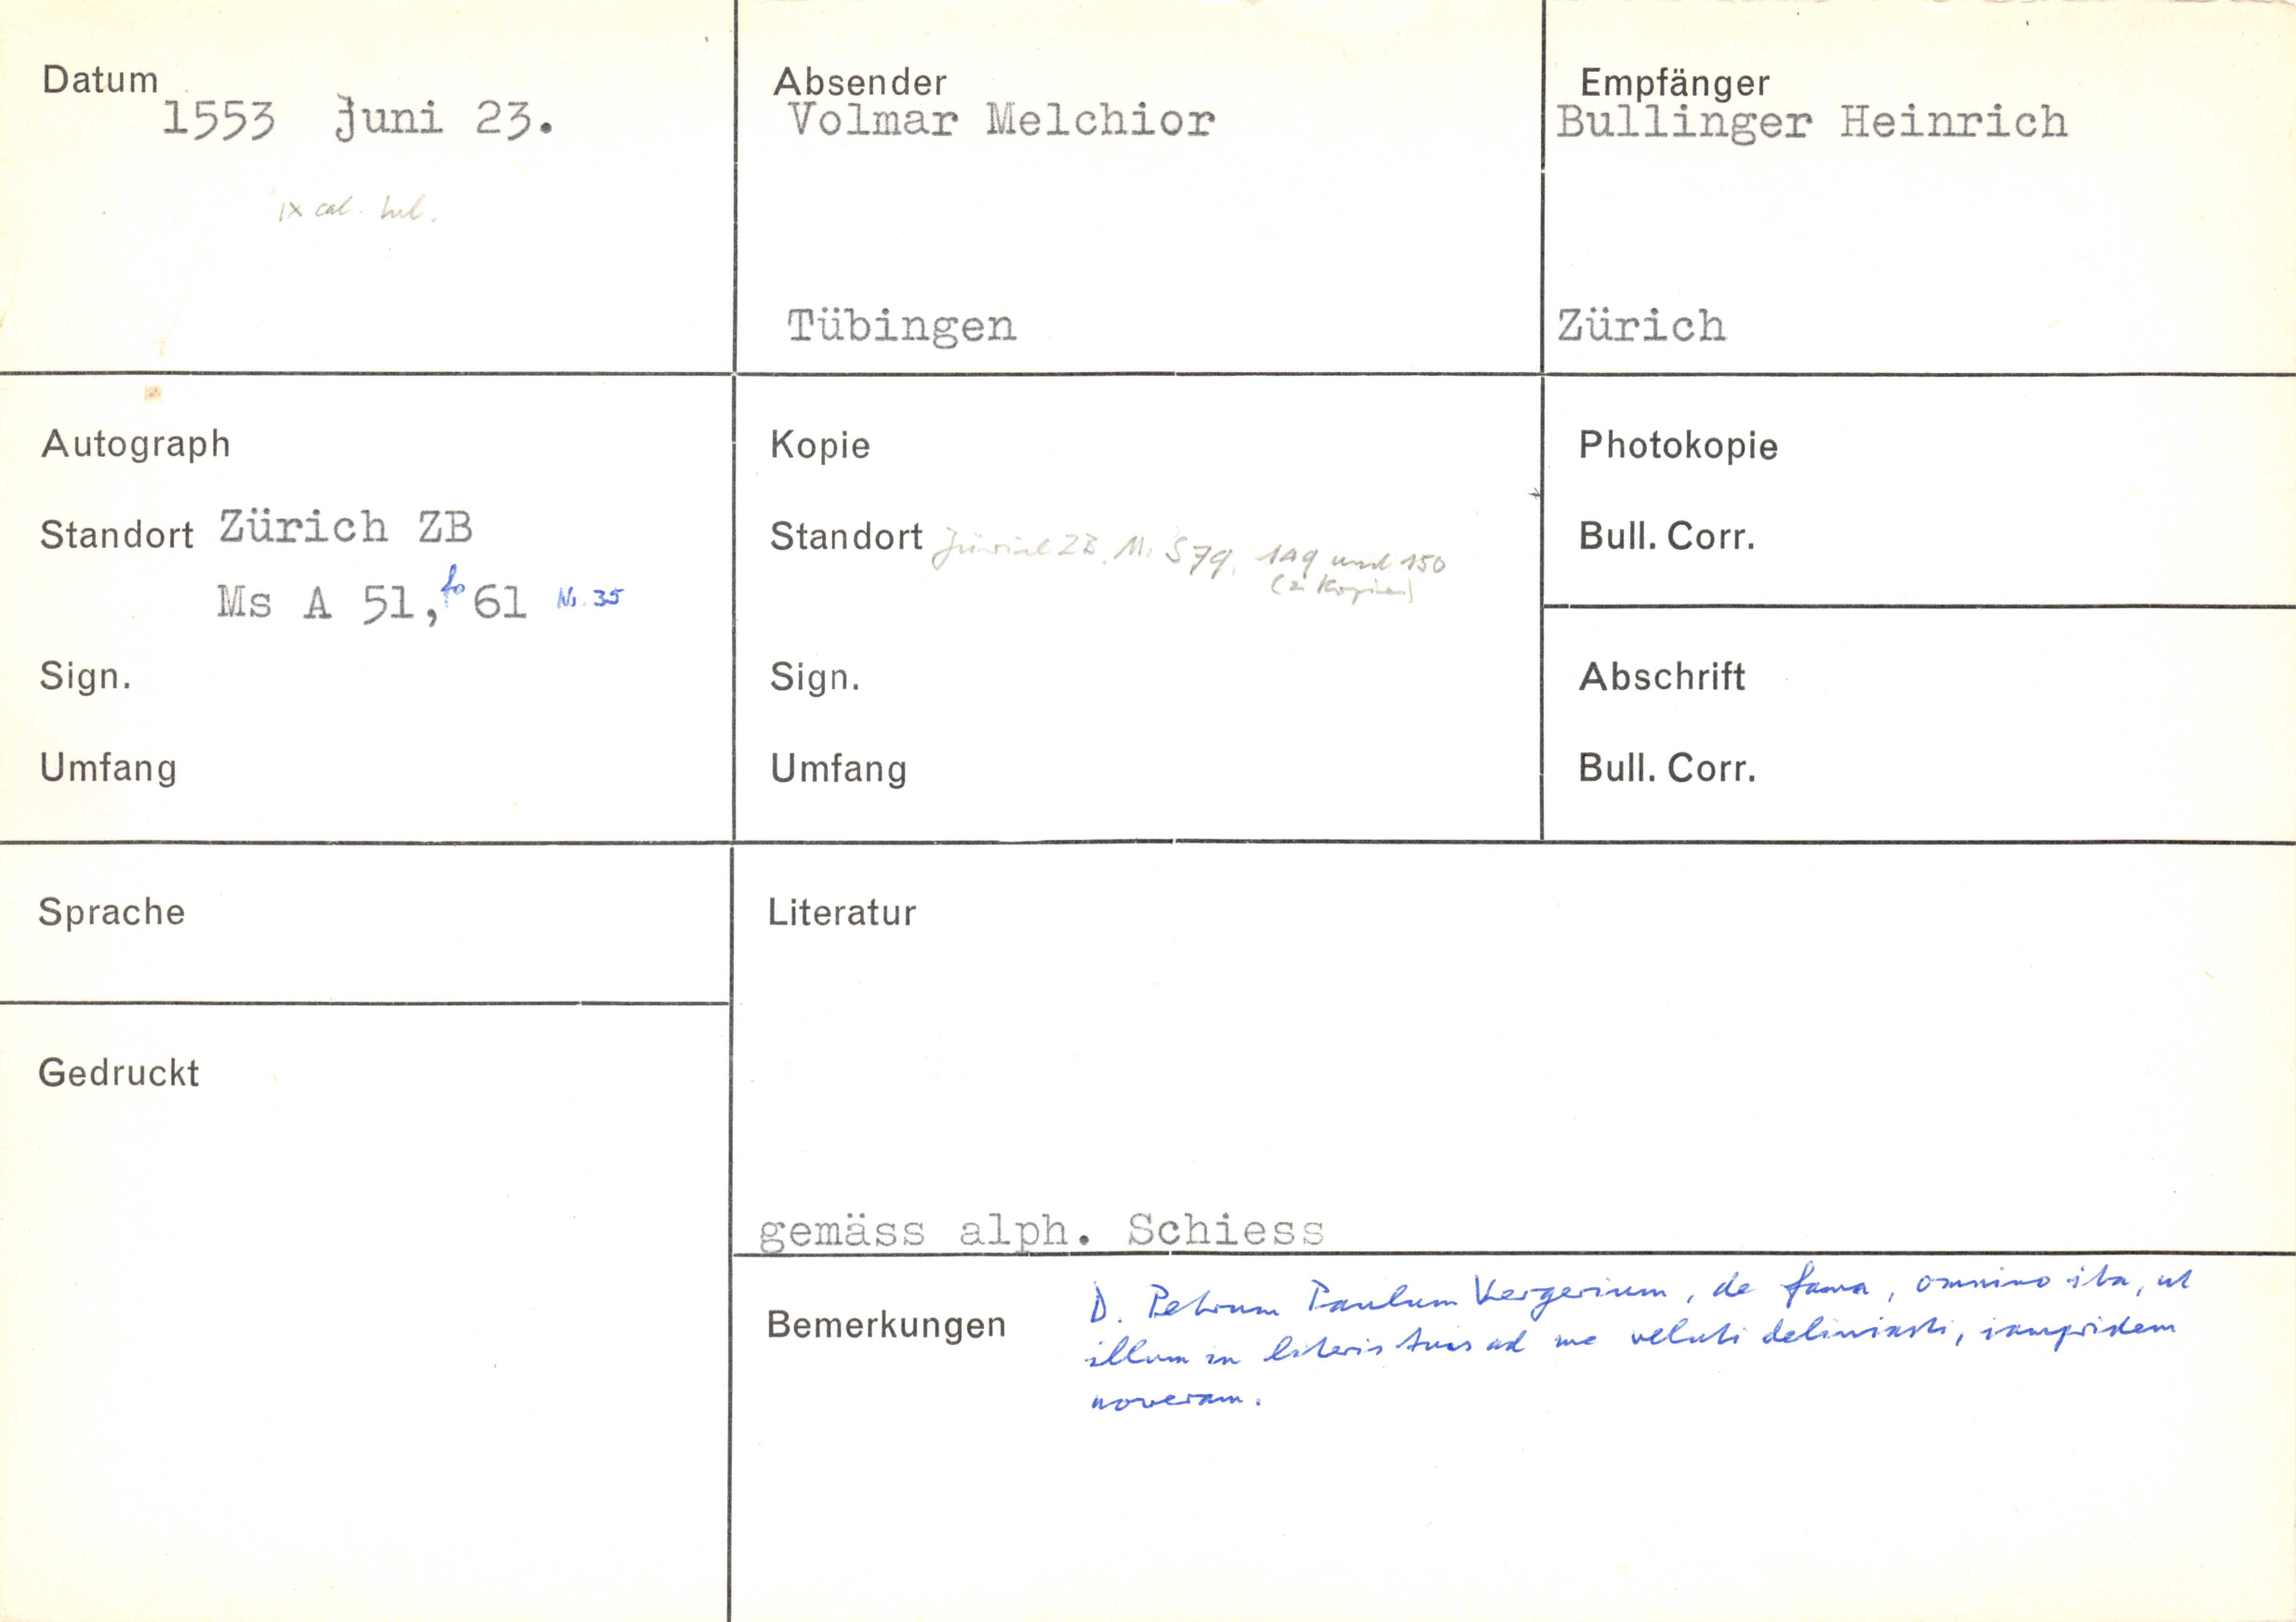 Datum
1553 Juni 23.
IX cal. Iul.
Absender
Volmar Melchior
Tübingen
Empfänger
Bullinger Heinrich
Zürich
Autograph
Standort Zürich ZB
Ms A 51, fo 61 Nr. 35
Sign.
Umfang
Kopie
Standort Zürich ZB, Ms S 79, 149 und 150
(2 Kopien)
Sign.
Umfang
Photokopie
Bull. Corr.
Abschrift
Bull. Corr.
Sprache
Gedruckt
Literatur
gemäss alph. Schiess
Bemerkungen
D. Petrum Paulum Vergerium, de fama, omnino ita, ut
illum in literis tuis ad me veluti deliniasti, iampridem
noveram.